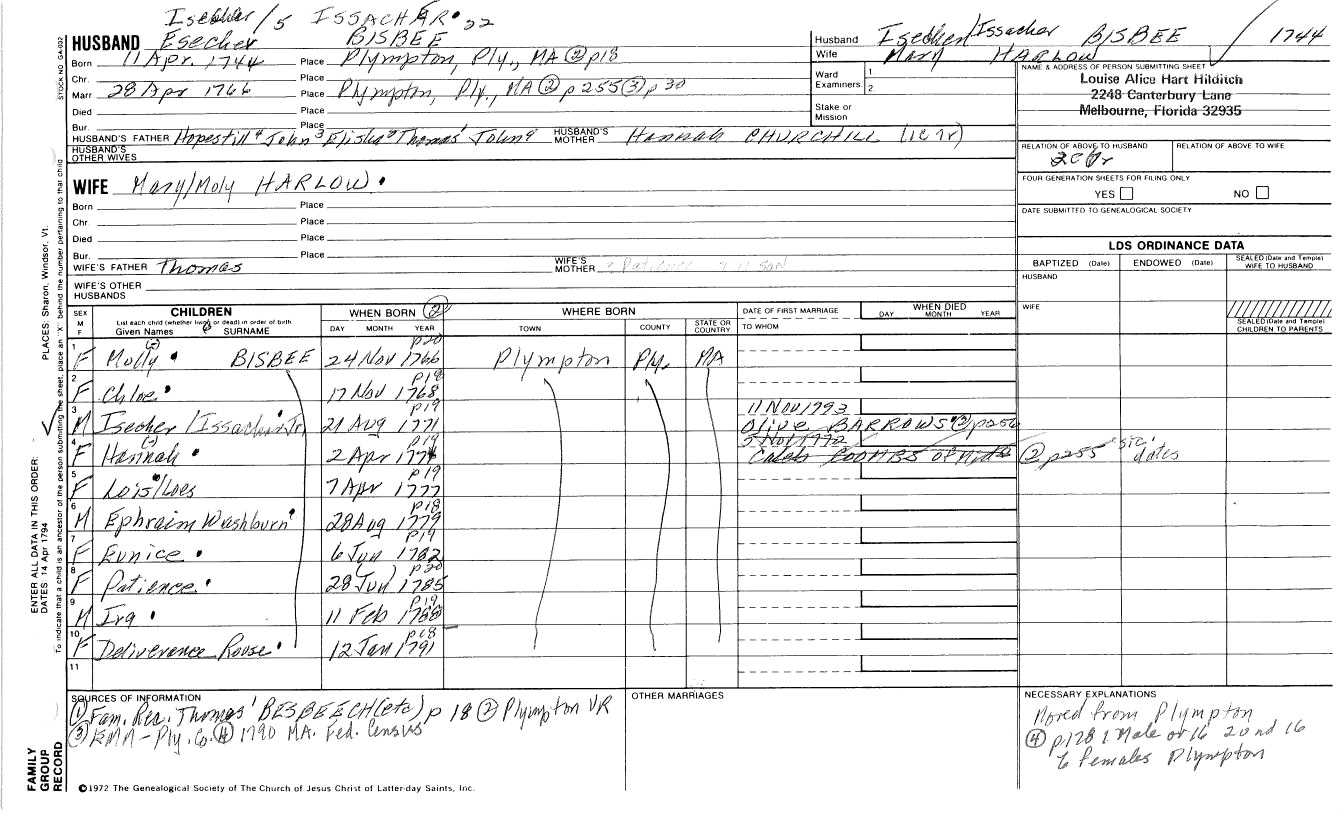 Isecher / 5 ISSACHAR 22
HUSBAND Esecher BISBEE
Born 11 Apr. 1744 Place Plympton, Ply., MA ② p18
Chr. Place
Marr 28 Apr 1766 Place Plympton, Ply., MA ② p255 ③ p30
Died Place
Bur. Place
HUSBAND'S FATHER Hopestill 4 John 3 Elisha 2 Thomas 1 John HUSBAND'S MOTHER Hannah CHURCHILL
HUSBAND'S OTHER WIVES
STOCK NO. GA-032
Husband Isecher/Issacher BISBEE 1744
Wife Mary HARLOW
Ward Examiners 1
2
Stake or Mission
NAME & ADDRESS OF PERSON SUBMITTING SHEET
Louise Alice Hart Hilditch
2248 Canterbury Lane
Melbourne, Florida 32935
RELATION OF ABOVE TO HUSBAND RELATION OF ABOVE TO WIFE
FOUR GENERATION SHEETS FOR FILING ONLY
YES NO
DATE SUBMITTED TO GENEALOGICAL SOCIETY
WIFE Mary/Moly HARLOW
Born Place
Chr Place
Died Place
Bur. Place
WIFE'S FATHER Thomas WIFE'S MOTHER Patience
WIFE'S OTHER HUSBANDS
LDS ORDINANCE DATA
BAPTIZED (Date) ENDOWED (Date) SEALED (Date and Temple) WIFE TO HUSBAND
HUSBAND
WIFE
SEALED (Date and Temple) CHILDREN TO PARENTS
SEX M F CHILDREN WHEN BORN ② WHERE BORN DATE OF FIRST MARRIAGE WHEN DIED
List each child (whether living or dead) in order of birth
Given Names SURNAME DAY MONTH YEAR TOWN COUNTY STATE OR COUNTRY TO WHOM DAY MONTH YEAR
1 F Molly BISBEE 24 Nov 1766 p20 Plympton Ply. MA
2 F Chloe 17 Nov 1768 p18
3 M Isecher/Issachar Jr 21 Aug 1771 p19 11 Nov 1793 Olive BARROWS ② p256
4 F Hannah 2 Apr 1774 p19 5 Nov 1772 Caleb COOMBS of ② p255 'sic' dates
5 F Lois/Loes 7 Apr 1777 p19
6 M Ephraim Washburn 28 Aug 1779 p18
7 F Eunice 6 Jun 1782 p19
8 F Patience 28 Jun 1785 p20
9 M Ira 11 Feb 1788 p19
10 F Deliverance Rouse 12 Jan 1791 p18
11
SOURCES OF INFORMATION
① Fam. Rec. Thomas' BESBEECH (etc) p 18 ② Plympton VR
③ EMM-Ply. Co. ④ 1790 MA. Fed. Census
OTHER MARRIAGES
NECESSARY EXPLANATIONS
Moved from Plympton
④ p178 1 Male or 16 2 16
6 Females Plympton
©1972 The Genealogical Society of The Church of Jesus Christ of Latter-day Saints, Inc.
FAMILY GROUP RECORD
ENTER ALL DATA IN THIS ORDER:
DATES: 14 Apr 1794
PLACES: Sharon, Windsor, Vt.
To indicate that a child is an ancestor of the person submitting the sheet, place an "X" behind the number pertaining to that child